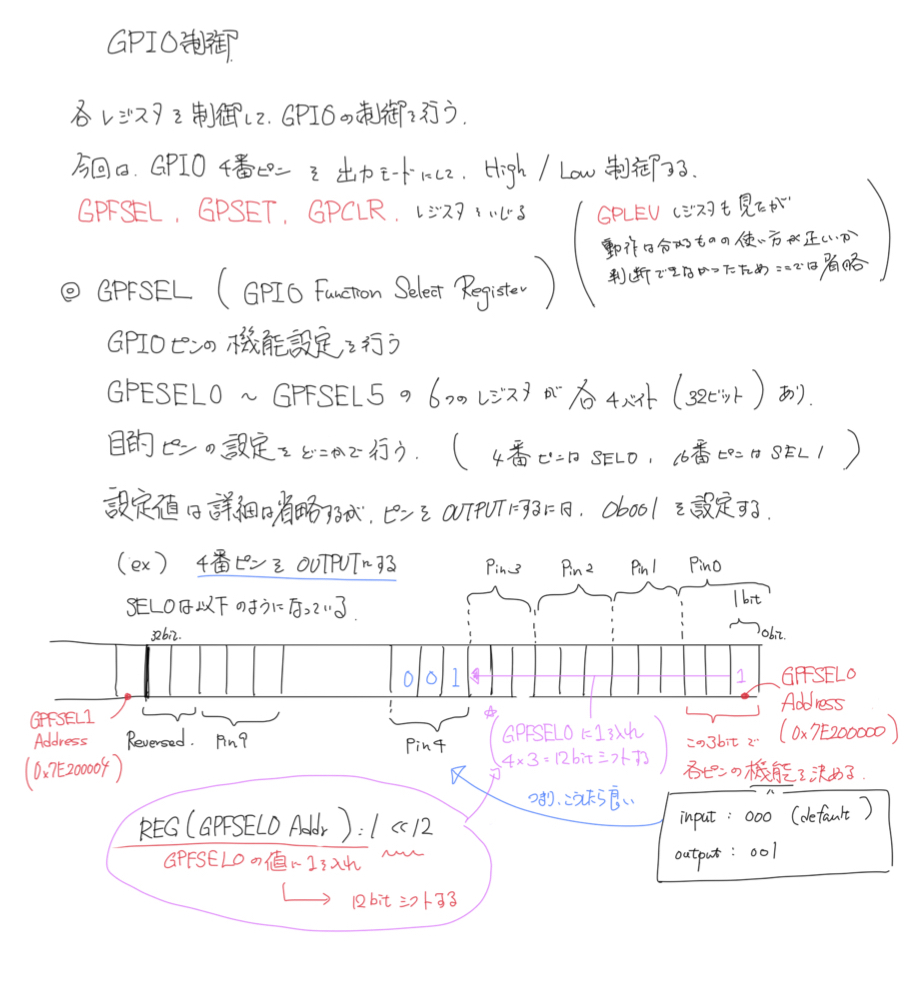 GPIO制御
各レジスタを制御して、GPIOの制御を行う.
今回は、GPIO 4番ピン を 出力モードにして、High / Low 制御する.
GPFSEL 、 GPSET 、 GPCLR 、 レジスタをいじる
( GPLEV レジスタも見たが
動作は分かるものの使い方が正しいか
判断できなかったためここでは省略 )
◎ GPFSEL ( GPIO Function Select Register )
GPIOピンの機能設定を行う
GPESEL0 ~ GPFSEL5 の 6つのレジスタが 各4バイト (32ビット) あり.
目的ピンの設定をどこかで行う. ( 4番ピンは SEL0 , 16番ピンは SEL1 )
設定値は詳細は省略するが、ピンを OUTPUTにするには、0b001 を設定する.
(ex) 4番ピンを OUTPUTにする
SEL0は以下のようになっている.
Pin3 Pin2 Pin1 Pin0
1bit
32bit. 0bit.
0 0 1 1
GPFSEL1
Address
(0x7E200004)
Reversed. Pin9 Pin4
☆
( GPFSEL0 に1を入れ
4×3=12bitシフトする )
GPFSEL0
Address
(0x7E200000)
この3bitで
各ピンの機能を決める.
つまり、こうしたら良い
input : 000 (default)
output : 001
REG(GPFSEL0 Addr) : 1 << 12
GPFSEL0の値に1を入れ
12bitシフトする